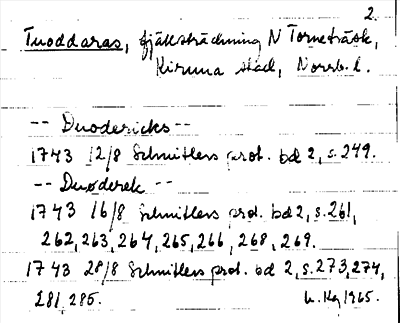 2.
Tuoddaras, fjällsträckning N Torneträsk,
Kiruna stad, Norrb. l.
-- Duodericks --
1743 12/8 Schnitlers prot. bd 2, s. 249.
-- Duoderek --
1743 16/8 Schnitlers prot. bd 2, s. 261,
262, 263, 264, 265, 266, 268, 269.
1743 28/8 Schnitlers prot. bd 2, s. 273, 274,
281, 285.
1965.